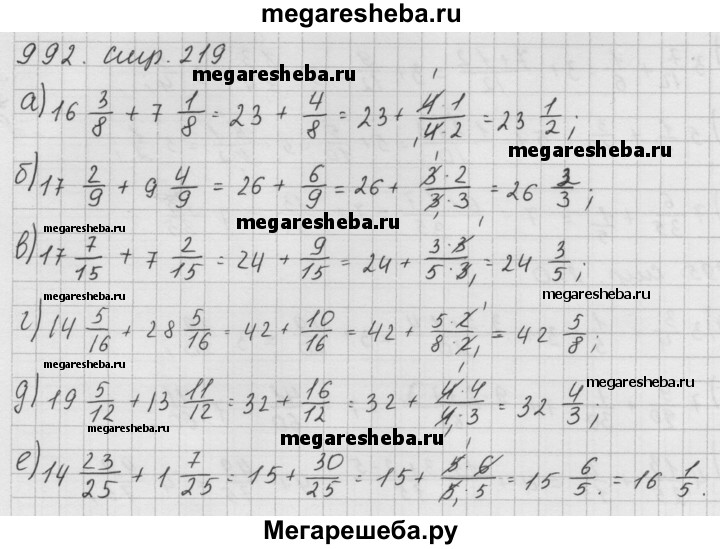 megaresheba.ru
992. стр. 219
megaresheba.ru
а) 16 3/8 + 7 1/8 = 23 + 4/8 = 23 + 4·1/4·2 = 23 1/2;
megaresheba.ru
б) 17 2/9 + 9 4/9 = 26 + 6/9 = 26 + 3·2/3·3 = 26 2/3;
megaresheba.ru megaresheba.ru
в) 17 7/15 + 7 2/15 = 24 + 9/15 = 24 + 3·3/5·3 = 24 3/5;
megaresheba.ru
г) 14 5/16 + 28 5/16 = 42 + 10/16 = 42 + 5·2/8·2 = 42 5/8;
megaresheba.ru
д) 19 5/12 + 13 11/12 = 32 + 16/12 = 32 + 4·4/4·3 = 32 4/3;
megaresheba.ru
megaresheba.ru megaresheba.ru
е) 14 23/25 + 1 7/25 = 15 + 30/25 = 15 + 5·6/5·5 = 15 6/5. = 16 1/5.
Мегарешеба.ру